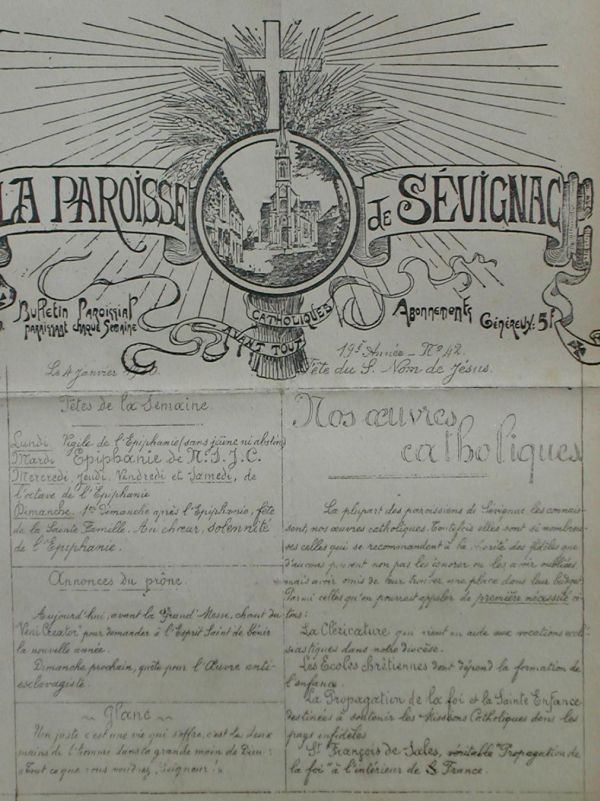 LA PAROISSE
de SÉVIGNAC
Bulletin Paroissial
paraissant chaque Semaine
CATHOLIQUES
AVANT TOUT
Abonnements
Généreux: 5f
Le 4 Janvier
19e Année - No 42.
Fête du S. Nom de Jésus.
Fêtes de la Semaine
Lundi. Vigile de l'Epiphanie (sans jeûne ni abstin
Mardi Epiphanie de N.S.J.C.
Mercredi, Jeudi, Vendredi et Samedi, de
l'octave de l'Epiphanie
Dimanche. 1er Dimanche après l'Epiphanie, fête
de la Sainte Famille. Au chœur, solennité
de l'Epiphanie.
Annonces du prône
Aujourd'hui, avant la Grand'Messe, chant du
"Veni Creator" pour demander à l'Esprit Saint de bénir
la nouvelle année.
Dimanche prochain, quête pour l'Œuvre anti-
esclavagiste.
~ Glane ~
Un juste c'est une vie qui s'offre, c'est les deux
mains de l'homme dans la grande main de Dieu:
"Tout ce que vous voudrez, Seigneur!"
Nos œuvres
catholiques
La plupart des paroissiens de Sévignac les connais-
sent, nos œuvres catholiques. Toutefois elles sont si nombreu-
ses celles qui se recommandent à la charité des fidèles que
d'aucuns peuvent non pas les ignorer ou les avoir oubliées,
mais avoir omis de leur une place dans leur budget.
Parmi celles qu'on pourrait appeler de première nécessité ci-
tons:
La Cléricature qui vient en aide aux vocations ecclé
siastiques dans notre diocèse.
Les Ecoles Chrétiennes dont dépend la formation de
l'enfance.
La Propagation de la foi et la Sainte Enfance
destinées à soutenir les Missions Catholiques dans les
pays infidèles
St François de Sales, véritable "Propagation de
la foi" à l'intérieur de France.